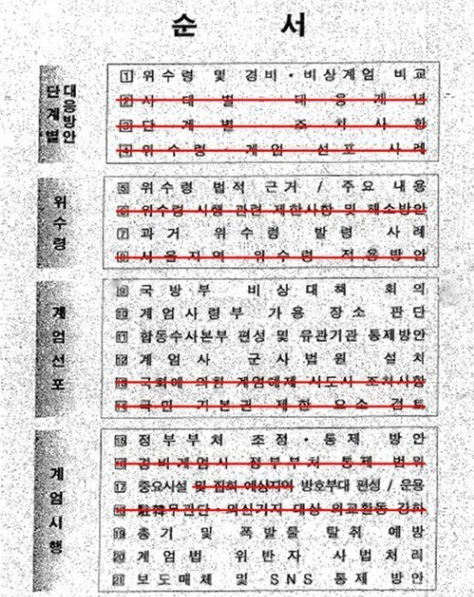 순 서
단계별 대응방안
1 위수령 및 경비·비상계엄 비교
2 사태별 대응개념
3 단계별 조치사항
4 위수령·계엄 선포 사례
위수령
5 위수령 법적 근거 / 주요 내용
6 위수령 시행 관련 제한사항 및 해소방안
7 과거 위수령 발령 사례
8 서울지역 위수령 적용방안
계엄선포
9 국방부 비상대책 회의
10 계엄사령부 가용 장소 판단
11 합동수사본부 편성 및 유관기관 통제방안
12 계엄사 군사법원 설치
13 국회에 의한 계엄해제 시도시 조치사항
14 국민 기본권 제한 요소 검토
계엄시행
15 정부부처 조정·통제 방안
16 경비계엄시 정부부처 통제 범위
17 중요시설 및 집회 예상지역 방호부대 편성 / 운용
18 駐韓무관단·외신기자 대상 외교활동 강화
19 총기 및 폭발물 탈취 예방
20 계엄법 위반자 사법처리
21 보도매체 및 SNS 통제 방안